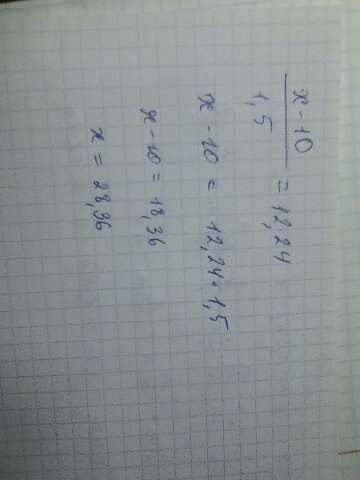 x - 10
1,5
= 12,24
x - 10 = 12,24 · 1,5
x - 10 = 18,36
x = 28,36